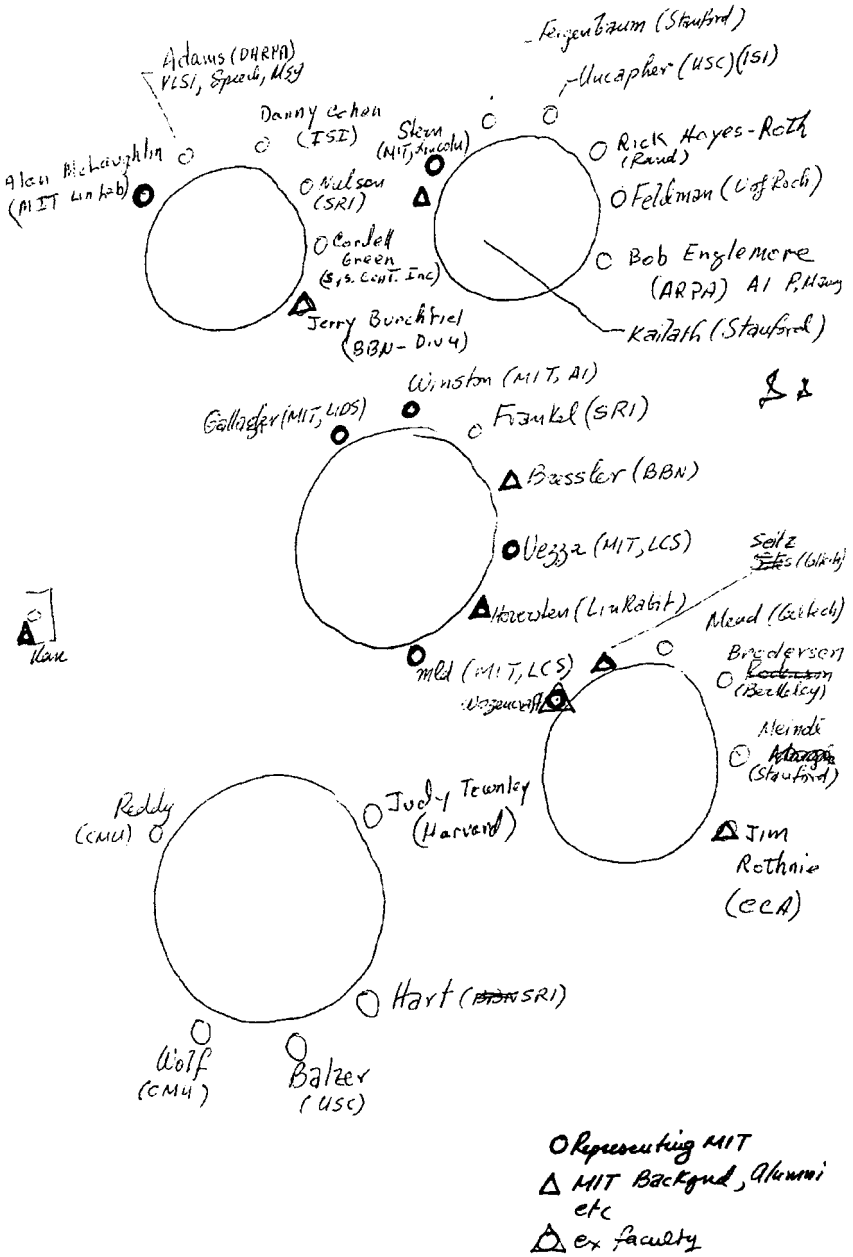 Feigenbaum (Stanford)
Uncapher (USC)(ISI)
Adams (DARPA)
VLSI, Speech, Msg
Danny Cohen
(ISI)
Stern
(MIT, Lincoln)
Rick Hayes-Roth
(Rand)
Alan McLaughlin
(MIT Lin Lab)
Nielson
(SRI)
Feldman (U of Roch)
Cordell
Green
(Sys. Cont. Inc)
Bob Englemore
(ARPA) AI
Jerry Burchfiel
(BBN - Div 4)
Kailath (Stanford)
Winston (MIT, AI)
Gallager (MIT, LIDS)
Frankel (SRI)
Bressler (BBN)
Vezza (MIT, LCS)
Seitz
(Caltech)
Heversten (LinKabit)
Mead (Caltech)
Kan
mld (MIT, LCS)
Brodersen
(Berkeley)
Wozencraft
Meindl
(Stanford)
Reddy
(CMU)
Judy Townley
(Harvard)
Jim
Rothnie
(CCA)
Hart (BBN SRI)
Wolf
(CMU)
Balzer
(USC)
Representing MIT
MIT Backgnd, Alumni
etc
ex faculty